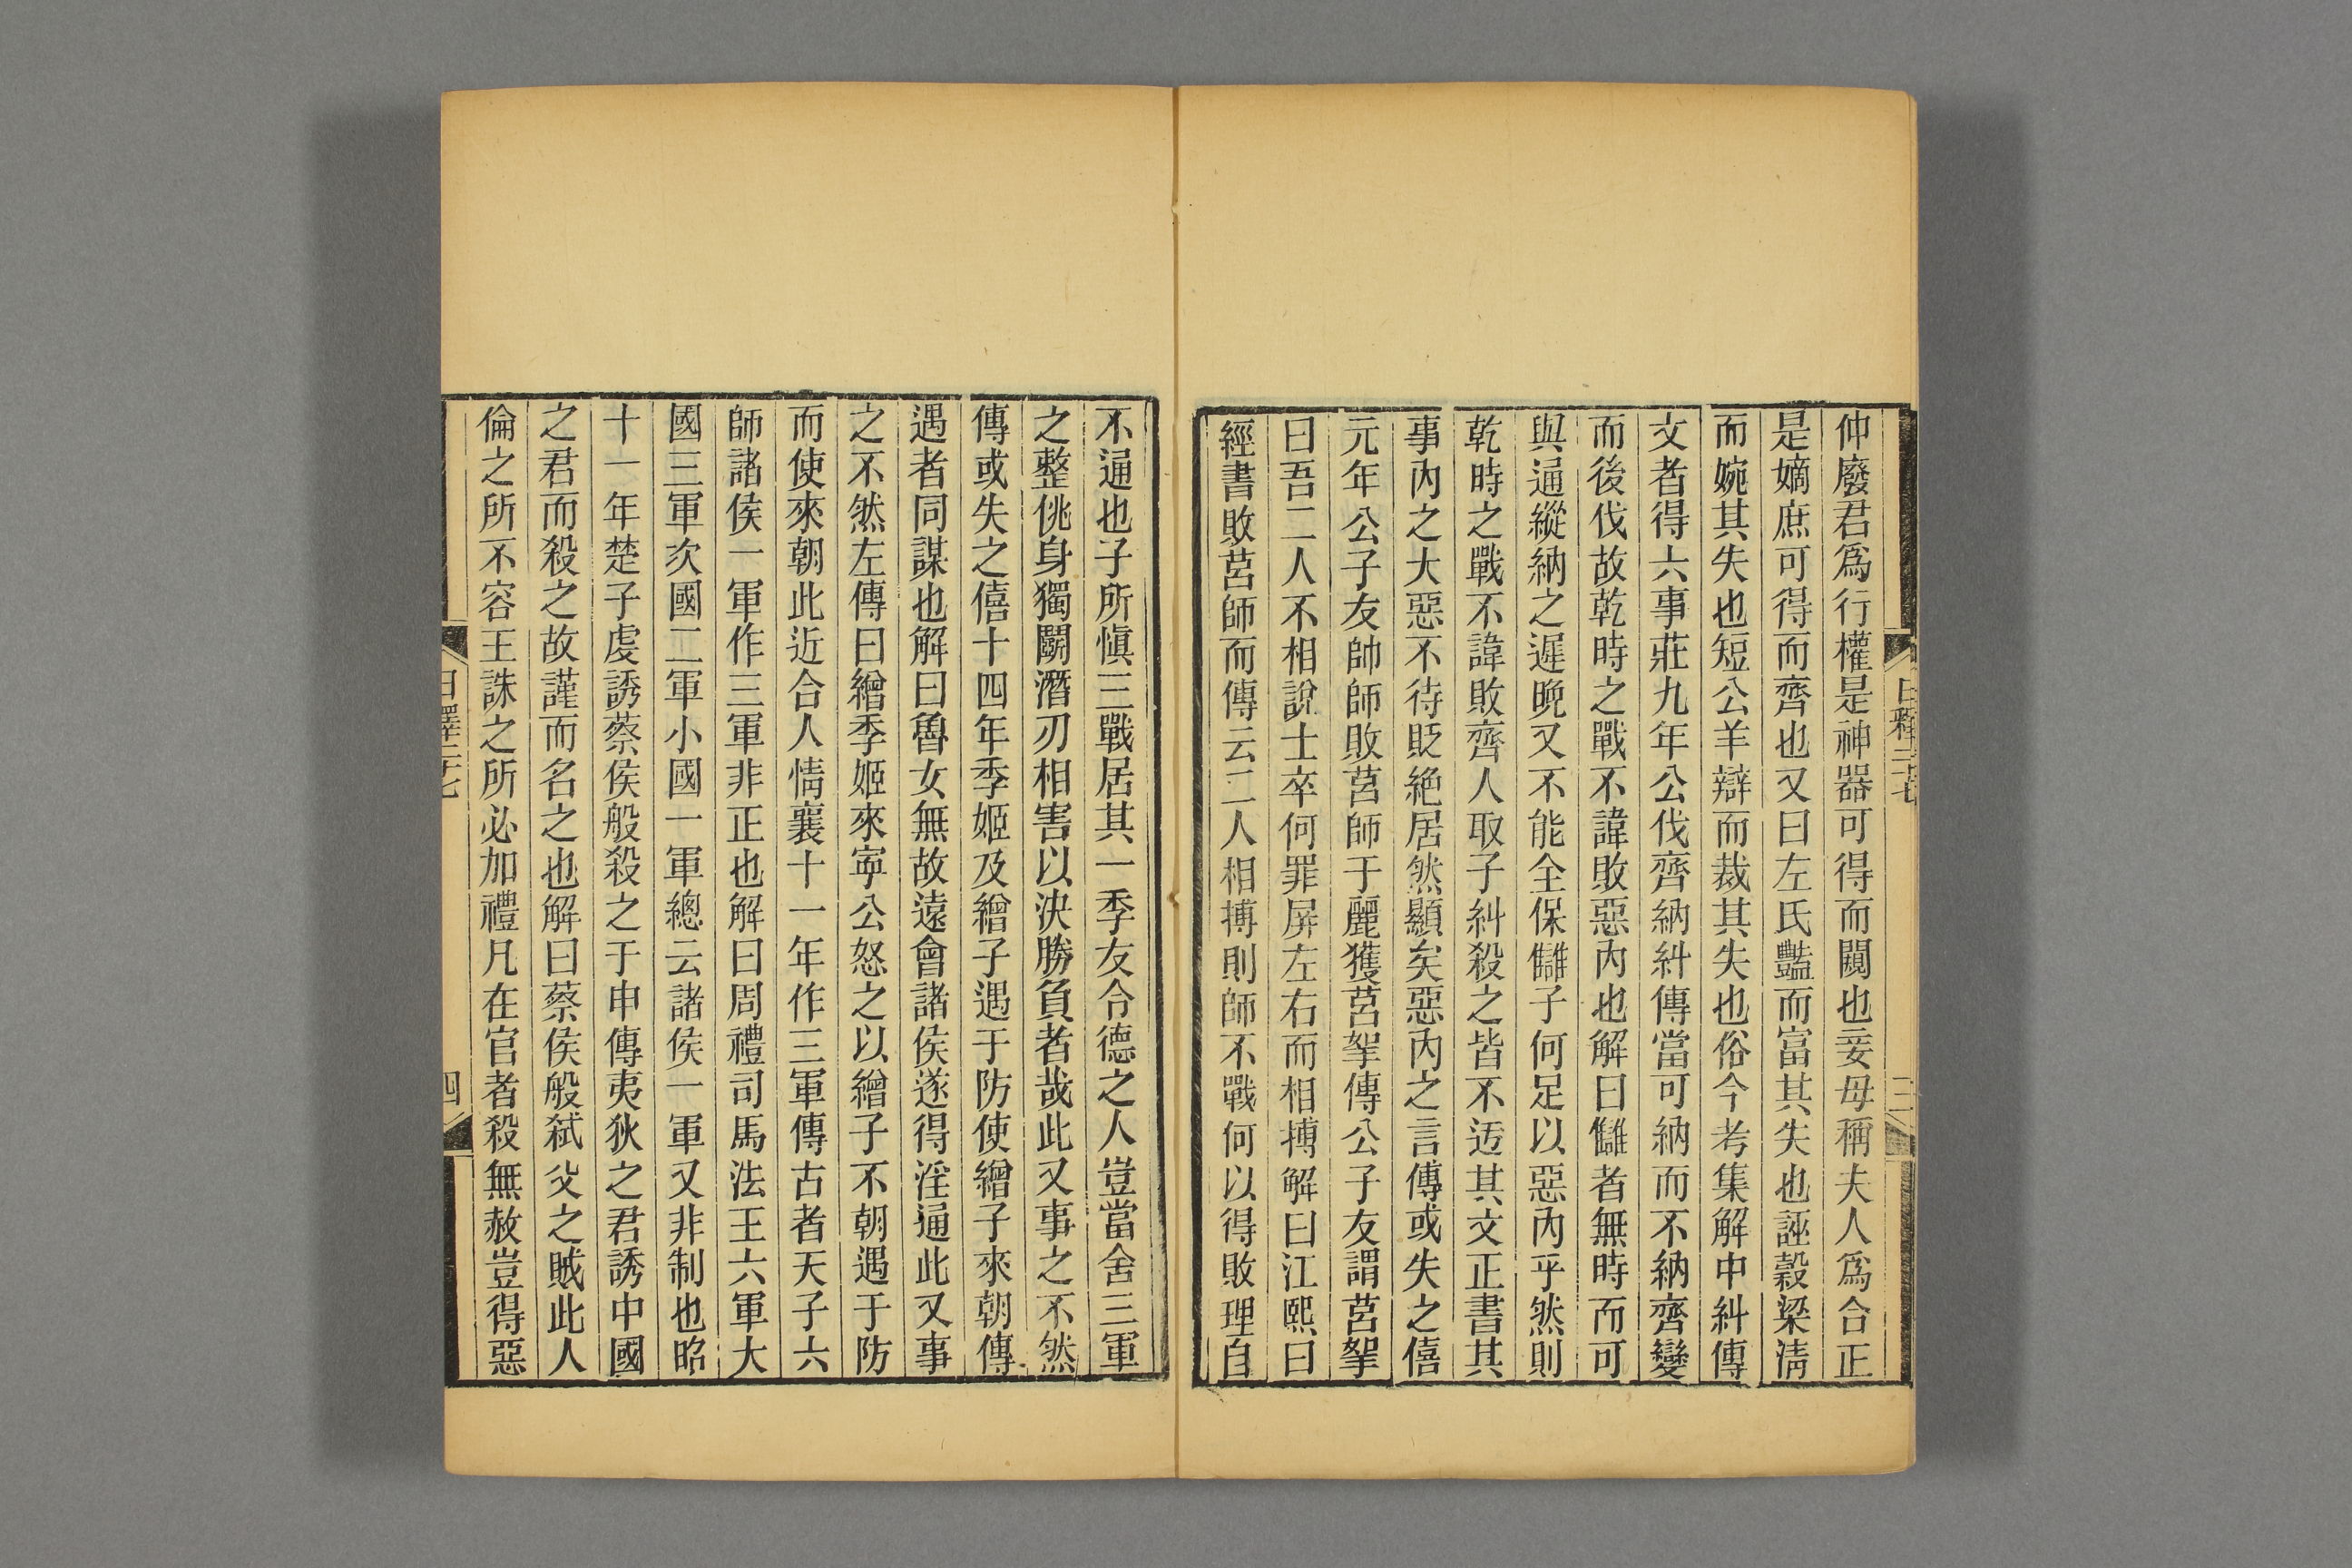 仲廢君爲行權是神器可得而闚也妾母稱夫人爲合正
是嫡庶可得而齊也又曰左氏豔而富其失也誣穀梁淸
而婉其失也短公羊辯而裁其失也俗今考集解中糾傳
文者得六事莊九年公伐齊納糾傳當可納而不納齊變
而後伐故乾時之戰不諱敗惡內也解曰讎者無時而可
與通縱納之遲晚又不能全保讎子何足以惡內乎然則
乾時之戰不諱敗齊人取子糾殺之皆不迃其文正書其
事內之大惡不待貶絕居然顯矣惡內之言傳或失之僖
元年公子友帥師敗莒師于麗獲莒挐傳公子友謂莒挐
曰吾二人不相說士卒何罪屏左右而相搏解曰江熙曰
經書敗莒師而傳云二人相搏則師不戰何以得敗理自
不通也子所愼三戰居其一季友令德之人豈當舍三軍
之整佻身獨鬭潛刃相害以決勝負者哉此又事之不然
傳或失之僖十四年季姬及繒子遇于防使繒子來朝傳
遇者同謀也解曰魯女無故遠會諸侯遂得淫通此又事
之不然左傳曰繒季姬來寧公怒之以繒子不朝遇于防
而使來朝此近合人情襄十一年作三軍傳古者天子六
師諸侯一軍作三軍非正也解曰周禮司馬法王六軍大
國三軍次國二軍小國一軍總云諸侯一軍又非制也昭
十一年楚子虔誘蔡侯般殺之于申傳夷狄之君誘中國
之君而殺之故謹而名之也解曰蔡侯般弒父之賊此人
倫之所不容王誅之所必加禮凡在官者殺無赦豈得惡
日釋二十七
四